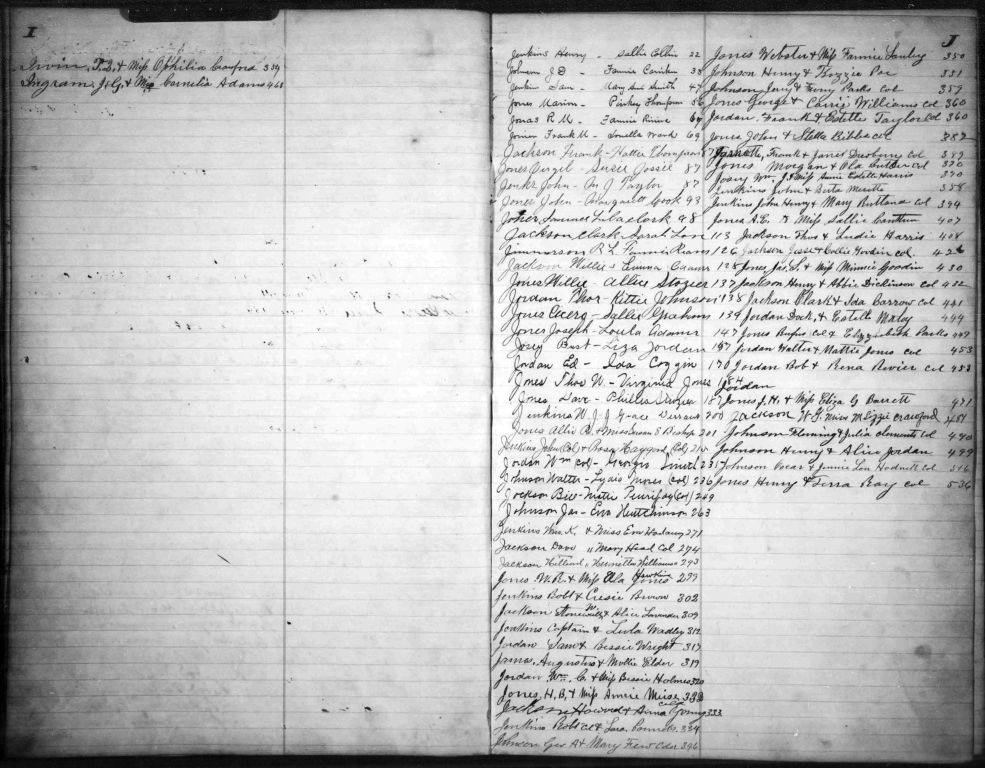 I
Irvin, T.D. & Miss Ophilia Craford 354
Ingram, J.G. & Miss Cornelia Adams 468
J
Jenkins Henry - Sallie Collin 22
Johnson J D - Fannie 38
Jenkins Sam - Mary Ann Smith 47
Jones Marion - Pinkey Thompson 56
Jonas R M - Fannie 64
Joiner Frank M - Luella Ward 69
Jackson Frank - Hattie Thompson
Jones Virgil - Jossie 87
John - M J Taylor 87
Jones John - Margarett Cook 93
Lula Clark 98
Jackson Clark - Sarah 113
R L Fannie 126
Jackson Willie & Emma 128
Jones Willie - Allie Stozier 137
Jordan Thos - Kittie Johnson 138
Jones - Sallie Grahams 139
Jones Joseph - Loula Adams 147
Josey Burt - Liza Jordan 157
Jordan Ed - Ida Coggin 170
Jones Thos W - Virginia Jones 184
Jones, Dave - Phillis 187
Jenkins W J J Grace 200
Jones Allie R. & Miss Susan E Bishop 201
Jenkins John (Col) & Rosa Haygood (Col)
Jordan Wm (Col) - Georgia Smith 231
Johnson Walter - Lydia Jones (Col) 236
Jackson Bill - Mattie (Col) 249
Johnson Jas - Eva Hutchinson 263
Jenkins Wm. K. & Miss Eva 271
Jackson Dave " Mary Head Col 274
Jackson Hilliard " Henrietta Williams 293
Jones W.R. & Miss Ola Jones Hawkins 299
Jenkins Robt & Cresie Brown 302
Jackson Stonewall & Alice Lavender 309
Jenkins Captain & Lula Wadley 312
Jordan Sam & Bessie Wright 317
Augustus & Mollie Elder 319
Jordan Wm. C. & Miss Bessie Holmes 320
Jones, H.B. & Miss Annie
Jackson Howard & Anna Young Col 333
Jenkins Robt Col & Sara 334
Johnson Geo A & Mary Few Color 346
Jones Webster & Miss Fannie 350
Johnson Henry & Kozzie Poe 351
Johnson Jerry & Parks Col 359
Jones George & Carrie Williams Col 360
Jordan, Frank & Estelle Taylor Col 360
Jones John & Stella Col 382
Frank & Janet Dewberry Col 389
Jones Morgan & Ola Butler Col 370
Josey Wm. J. & Miss Annie Edith Harris 370
Jenkins John & 358
Jenkins John Henry & Mary Rutland Col 394
Jones A.E. & Miss Sallie 407
Jackson Thos & Ludie Harris 408
Jackson Jesse & Collie Gordin Col. 426
Jones, Jas. S. & Miss Minnie Goodin 430
Jackson Henry & Abbie Dickinson Col 432
Jackson Clark & Ida Barrow Col 441
Jordan Dock, & Estelle 444
Jones Rufus Col & Elizziebeth Parks 449
Jordan Walter & Mattie Jones Col 453
Jordan Bob & Rena Col 453
Jordan
Jones J.H. & Miss Eliza G Barrett 471
Jackson W.G. Miss M Lizzie Crawford 484
Johnson Fleming & Julia Clements Col 490
Johnson Henry & Alice Jordan 499
Johnson Oscar & Jennie Lou Hodnett Col 516
Jones Henry & Ray Col 536